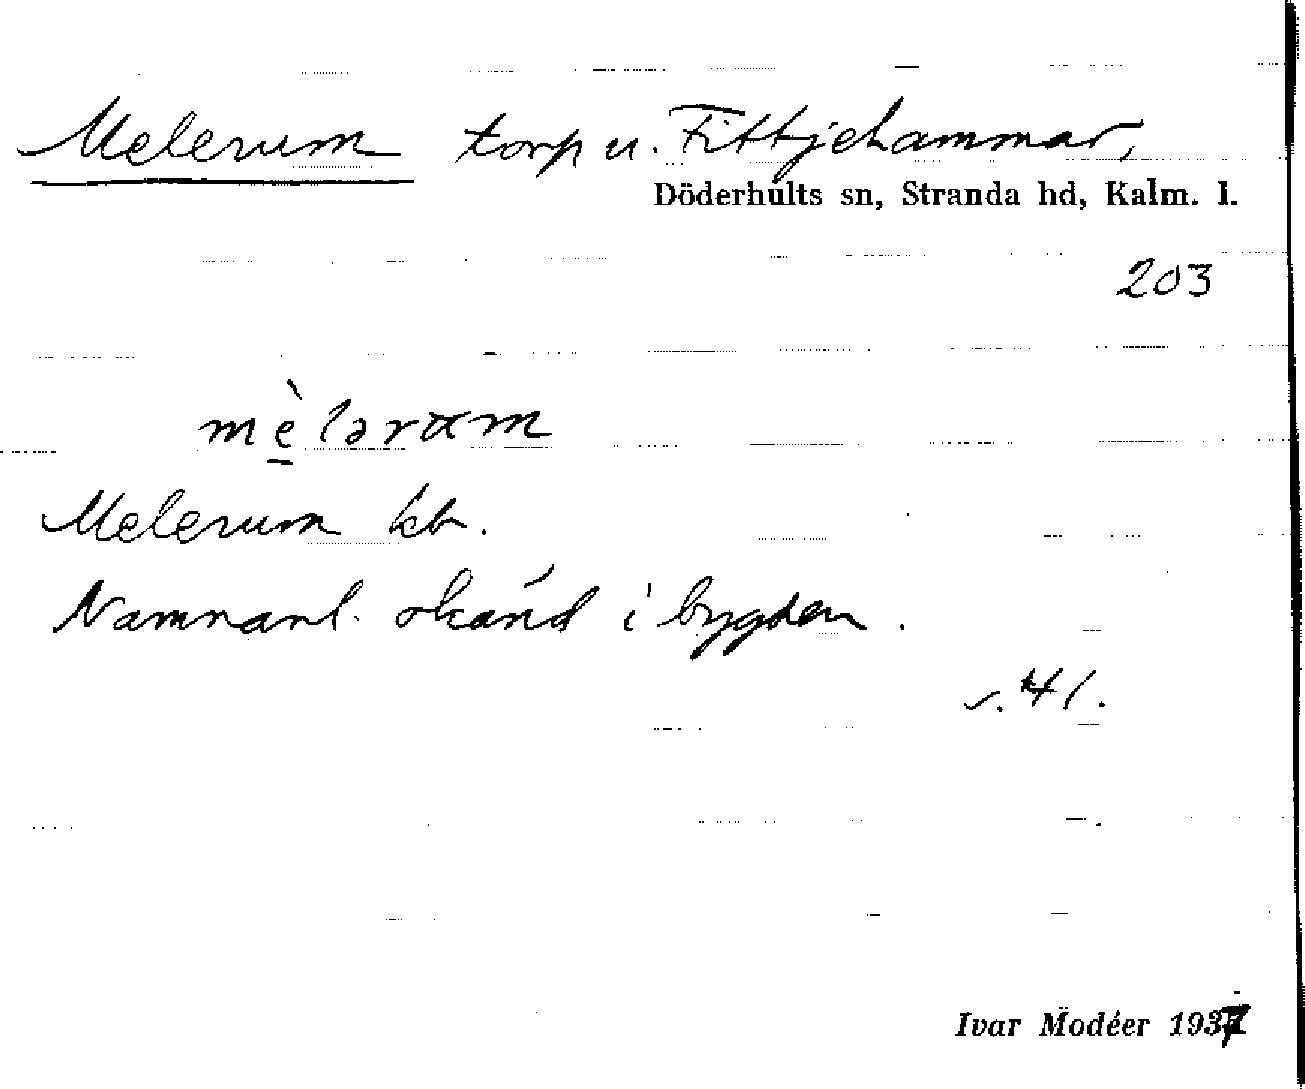 Melerum torp u. Fittjehammar,
Döderhults sn, Stranda hd, Kalm. l.
203
mè̠lərαm
Melerum kb.
Namnanl. okänd i bygden.
s. 41.
Ivar Modéer 1937